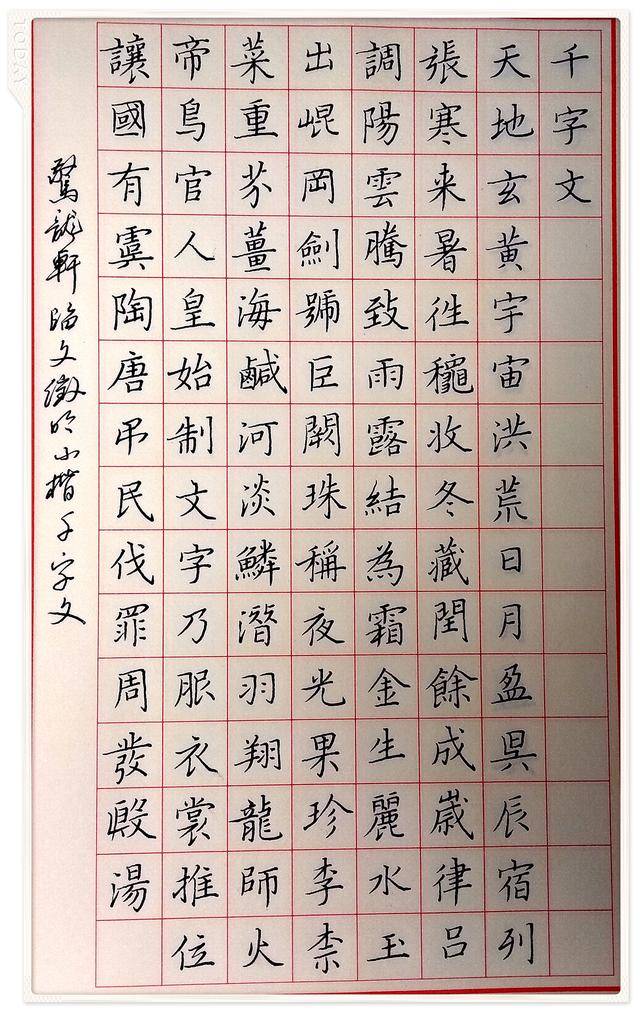 千字文
天地玄黄宇宙洪荒日月盈昃辰宿列
張寒来暑往秋收冬藏閏餘成歲律吕
調陽雲騰致雨露結為霜金生麗水玉
出崐岡劍號巨闕珠稱夜光果珍李柰
菜重芥薑海鹹河淡鱗潛羽翔龍師火
帝鳥官人皇始制文字乃服衣裳推位
讓國有虞陶唐弔民伐罪周發殷湯
驚龍軒臨文徵明小楷千字文
TODAY